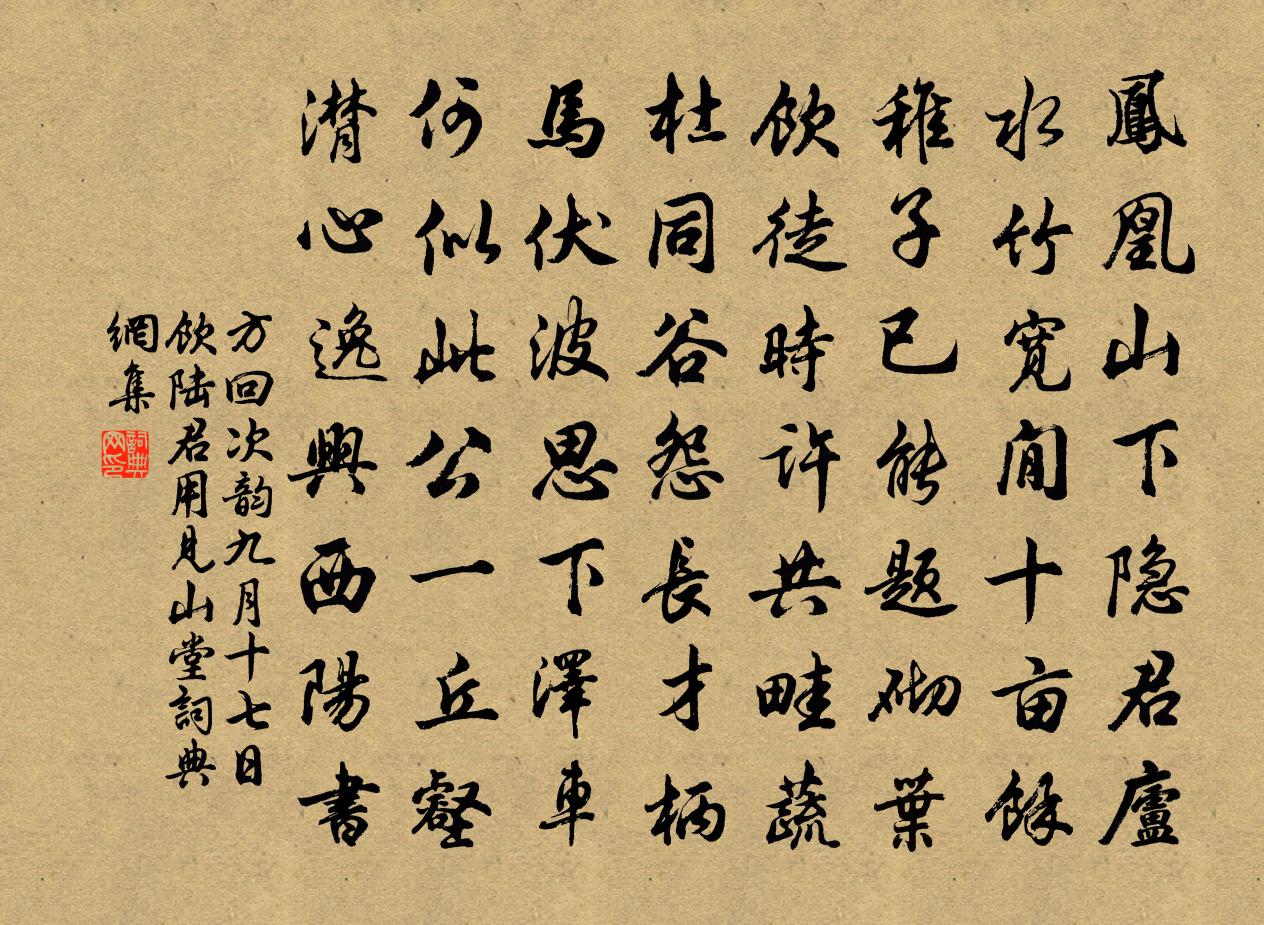 鳳凰山下隐君廬
水竹寬闲十亩餘
稚子已能题砌葉
飲徒時许共畦蔬
杜同谷怨長才柄
馬伏波思下澤車
何似此公一丘壑
潸心逸興西陽書
方回次韵九月十七日
飲陆君用見山堂詞典
網集
詞典网印